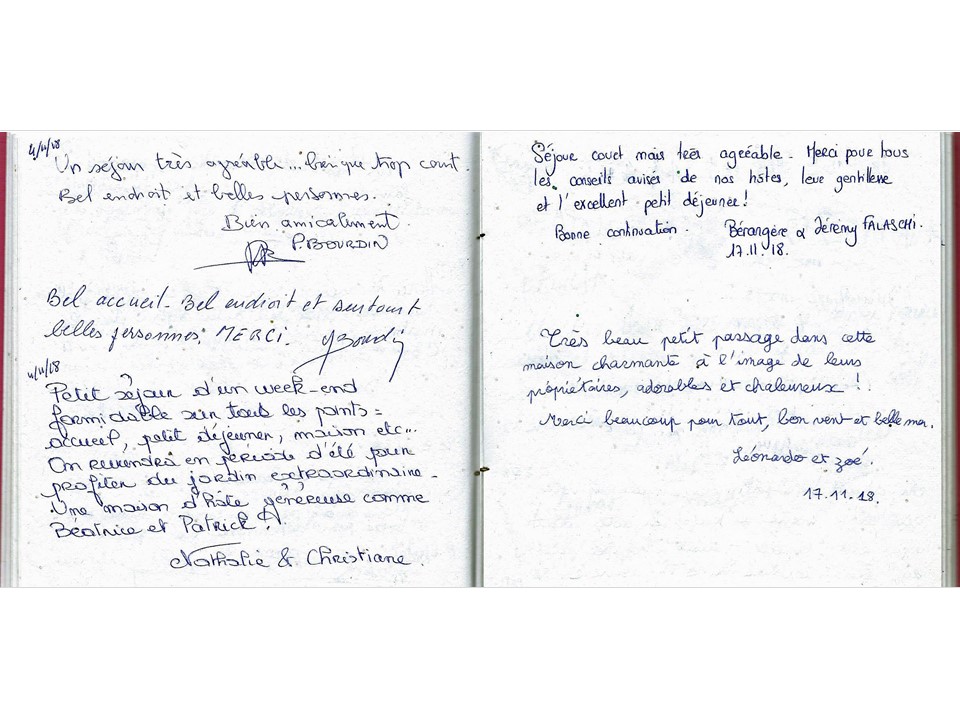 4/11/18
Un séjour très agréable... bien que trop court.
Bel endroit et belles personnes.
Bien amicalement.
P. BOURDIN
Bel accueil. Bel endroit et surtout
belles personnes. MERCI.
4/11/18
Petit séjour d'un week-end
formidable sur tous les points :
accueil, petit déjeuner, maison etc...
On reviendra en période d'été pour
profiter du jardin extraordinaire.
Une maison d'hôte généreuse comme
Béatrice et Patrick !
Nathalie & Christiane.
Séjour court mais très agréable. Merci pour tous
les conseils avisés de nos hôtes, leur gentillesse
et l'excellent petit déjeuner!
Bonne continuation. Bérangère & Jérémy FALASCHI.
17.11.18.
Très beau petit passage dans cette
maison charmante à l'image de leurs
propriétaires, adorables et chaleureux !
Merci beaucoup pour tout, bon vent et belle mer.
Léonardo et zoé.
17.11.18.